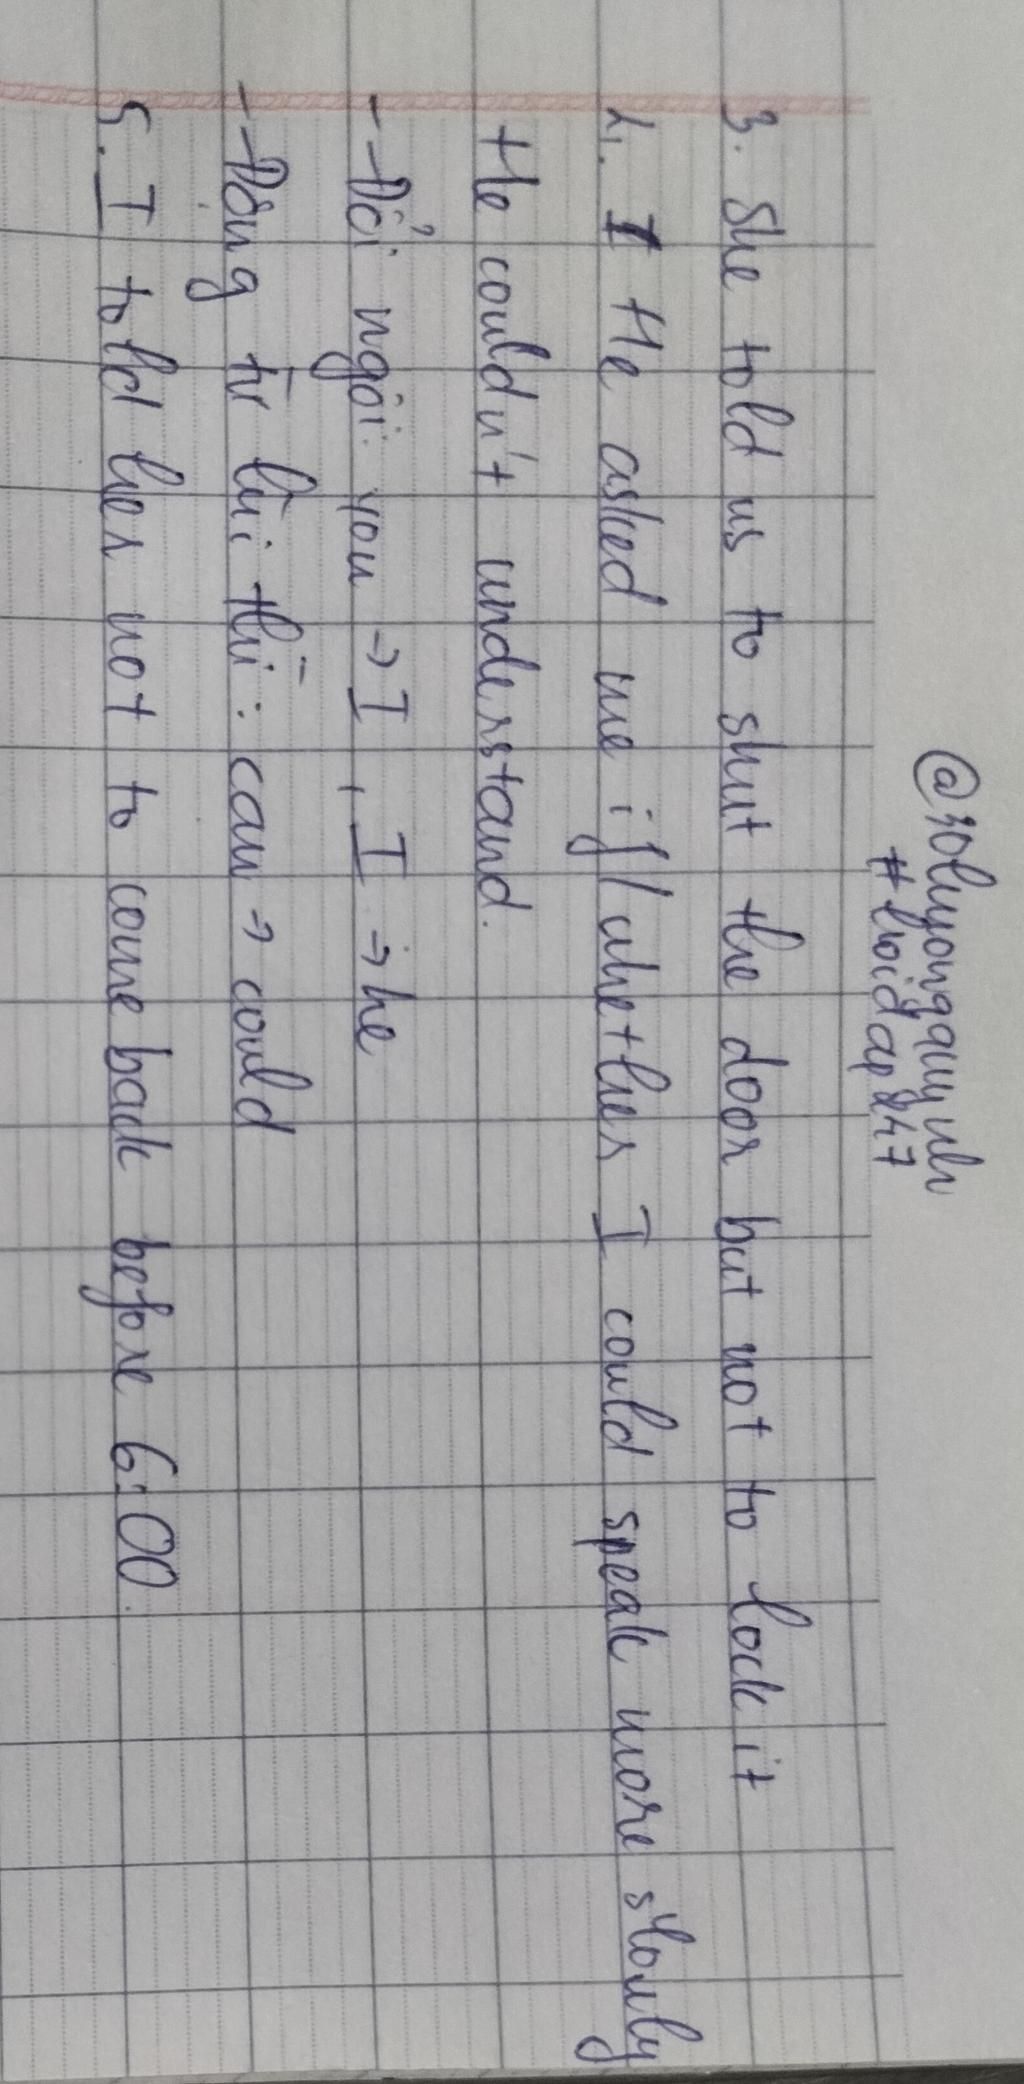 #hoidap247
3. She told us to shut the door but not to lock it
4. He asked me if / whether I could speak more slowly
He couldn't understand.
- Đổi ngôi: you → I, I → he
- Động từ lùi thì: can → could
5. I told her not to come back before 6:00.